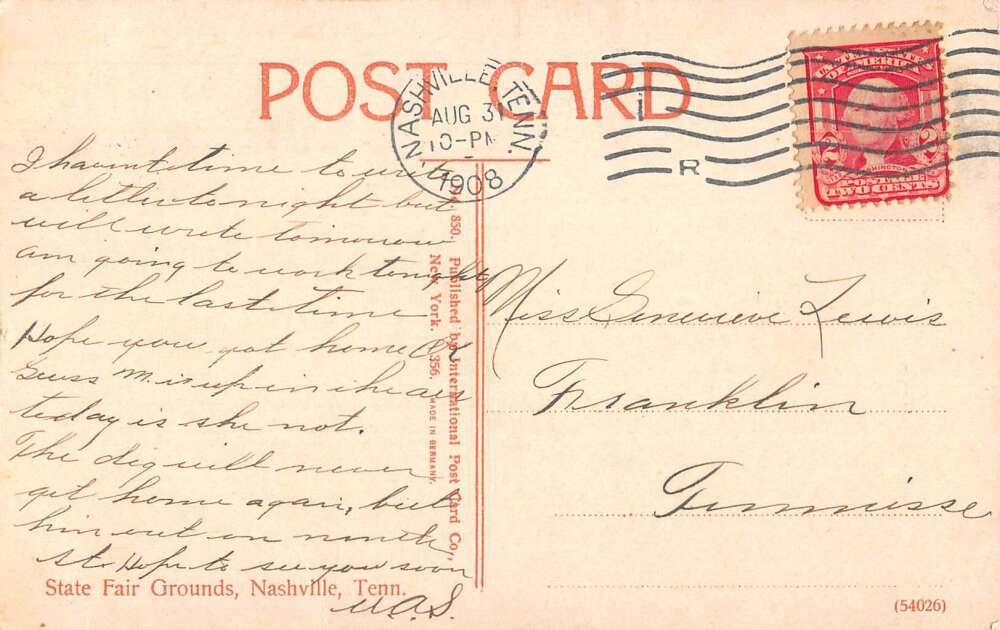 POST CARD
NASHVILLE, TENN.
AUG 31
10-PM
1908
R
UNITED STATES
OF AMERICA
2 2
WASHINGTON
POSTAGE
TWO CENTS
I havent time to write
a letter to night but
will write tomorrow
am going to work tonight
for the last time
Hope you got home OK
Guess M. is up in
today is she not.
The dig will never
get home again,
him out on ninth
st. Hope to see you soon
W.A.S.
850. Published by International Post Card Co.,
New York. 356. MADE IN GERMANY.
Miss Genevieve Lewis
Franklin
Tennnisse
State Fair Grounds, Nashville, Tenn.
(54026)